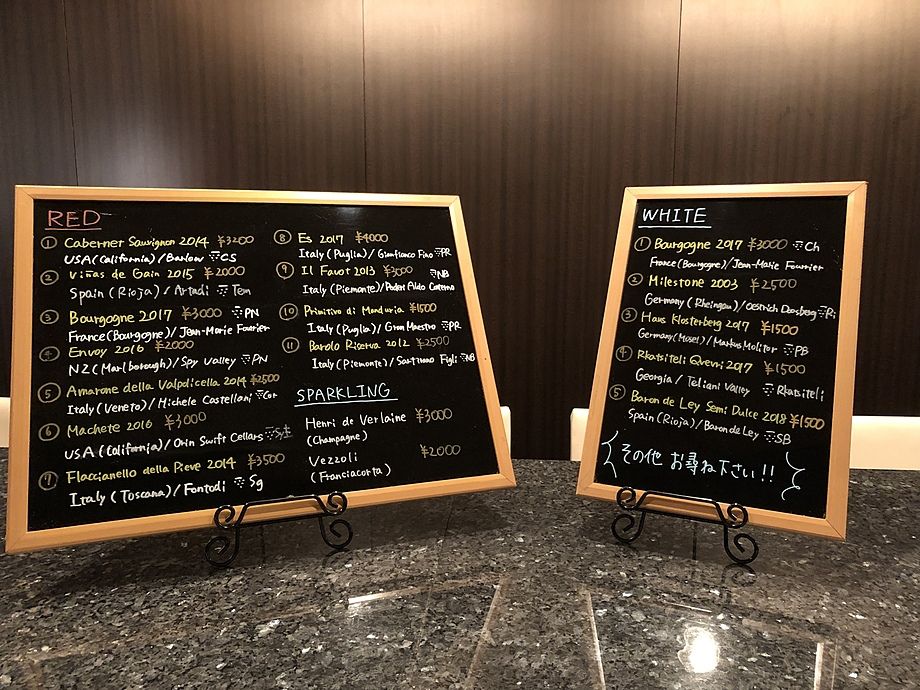 RED
① Caberner Sauvignon 2014 ¥3200
USA (California) / Barlow CS
② Viñas de Gain 2015 ¥2000
Spain (Rioja) / Artadi Tem
③ Bourgogne 2017 ¥3000 PN
France (Bourgogne) / Jean-Marie Fourrier
④ Envoy 2016 ¥2000
NZ (Marlborough) / Spy Valley PN
⑤ Amarone della Valpolicella 2014 ¥2500
Italy (Veneto) / Michele Castellani Cor
⑥ Machete 2016 ¥3000
USA (California) / Orin Swift Cellars
⑦ Flaccianello della Pieve 2014 ¥3500
Italy (Toscana) / Fontodi Sg
⑧ Es 2017 ¥4000
Italy (Puglia) / Gianfranco Fino PR
⑨ Il Favot 2013 ¥3000 NB
Italy (Piemonte) / Poderi Aldo Conterno
⑩ Primitivo di Manduria ¥1500
Italy (Puglia) / Gran Maestro PR
⑪ Barolo Riserva 2012 ¥2500
Italy (Piemonte) / Figli NB
SPARKLING
Henri de Verlaine ¥3000
(Champagne)
Vezzoli ¥2000
(Franciacorta)
WHITE
① Bourgogne 2017 ¥3000 Ch
France (Bourgogne) / Jean-Marie Fourrier
② Milestone 2003 ¥2500
Germany (Rheingau) / Oestrich Ri
③ Haus Klosterberg 2017 ¥1500
Germany (Mosel) / Markus Molitor PB
④ Rkatsiteli Qvevri 2017 ¥1500
Georgia / Teliani Valley Rkatsiteli
⑤ Baron de Ley Semi Dulce 2018 ¥1500
Spain (Rioja) / Baron de Ley SB
その他 お尋ね下さい!!